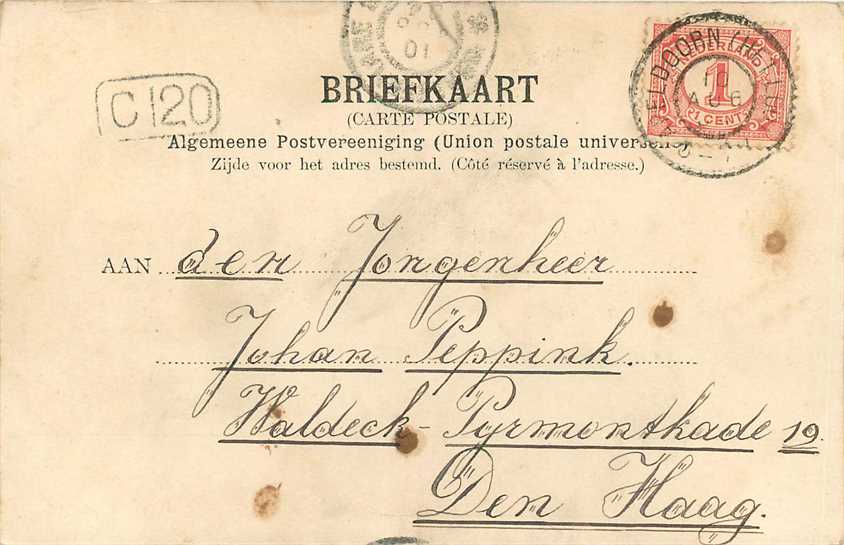 BRIEFKAART
(CARTE POSTALE)
Algemeene Postvereeniging (Union postale universelle)
Zijde voor het adres bestemd. (Côté réservé à l'adresse.)
C 120
NEDERLAND
1
1 CENT
AAN den Jongenheer
Johan Peppink.
Waldeck-Pyrmontkade 19.
Den Haag.